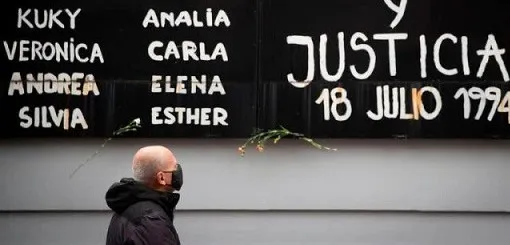 KUKY
VERONICA
ANDREA
SILVIA
ANALIA
CARLA
ELENA
ESTHER
Y
JUSTICIA
18 JULIO 1994